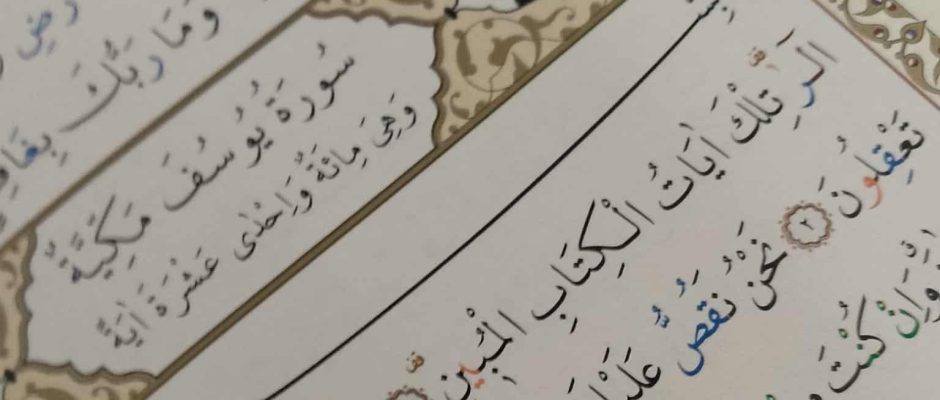 وَمَا رَبُّكَ بِغَافِ
سُورَةُ يُوسُفَ مَكِّيَّةٌ
وَهِيَ مِائَةٌ وَاِحْدٰى عَشْرَةَ اٰيَةً
الٓرٰ تِلْكَ اٰيَاتُ الْكِتَابِ الْمُبٖينِ ١
تَعْقِلُونَ ٢ نَحْنُ نَقُصُّ عَلَيْكَ
وَاِنْ كُنْتَ